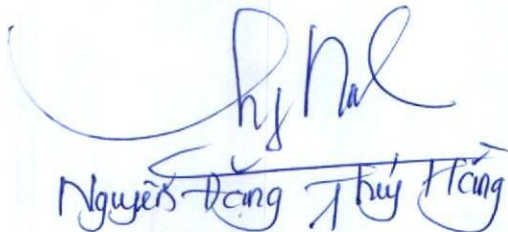 Nguyễn Đặng Thuý Hằng